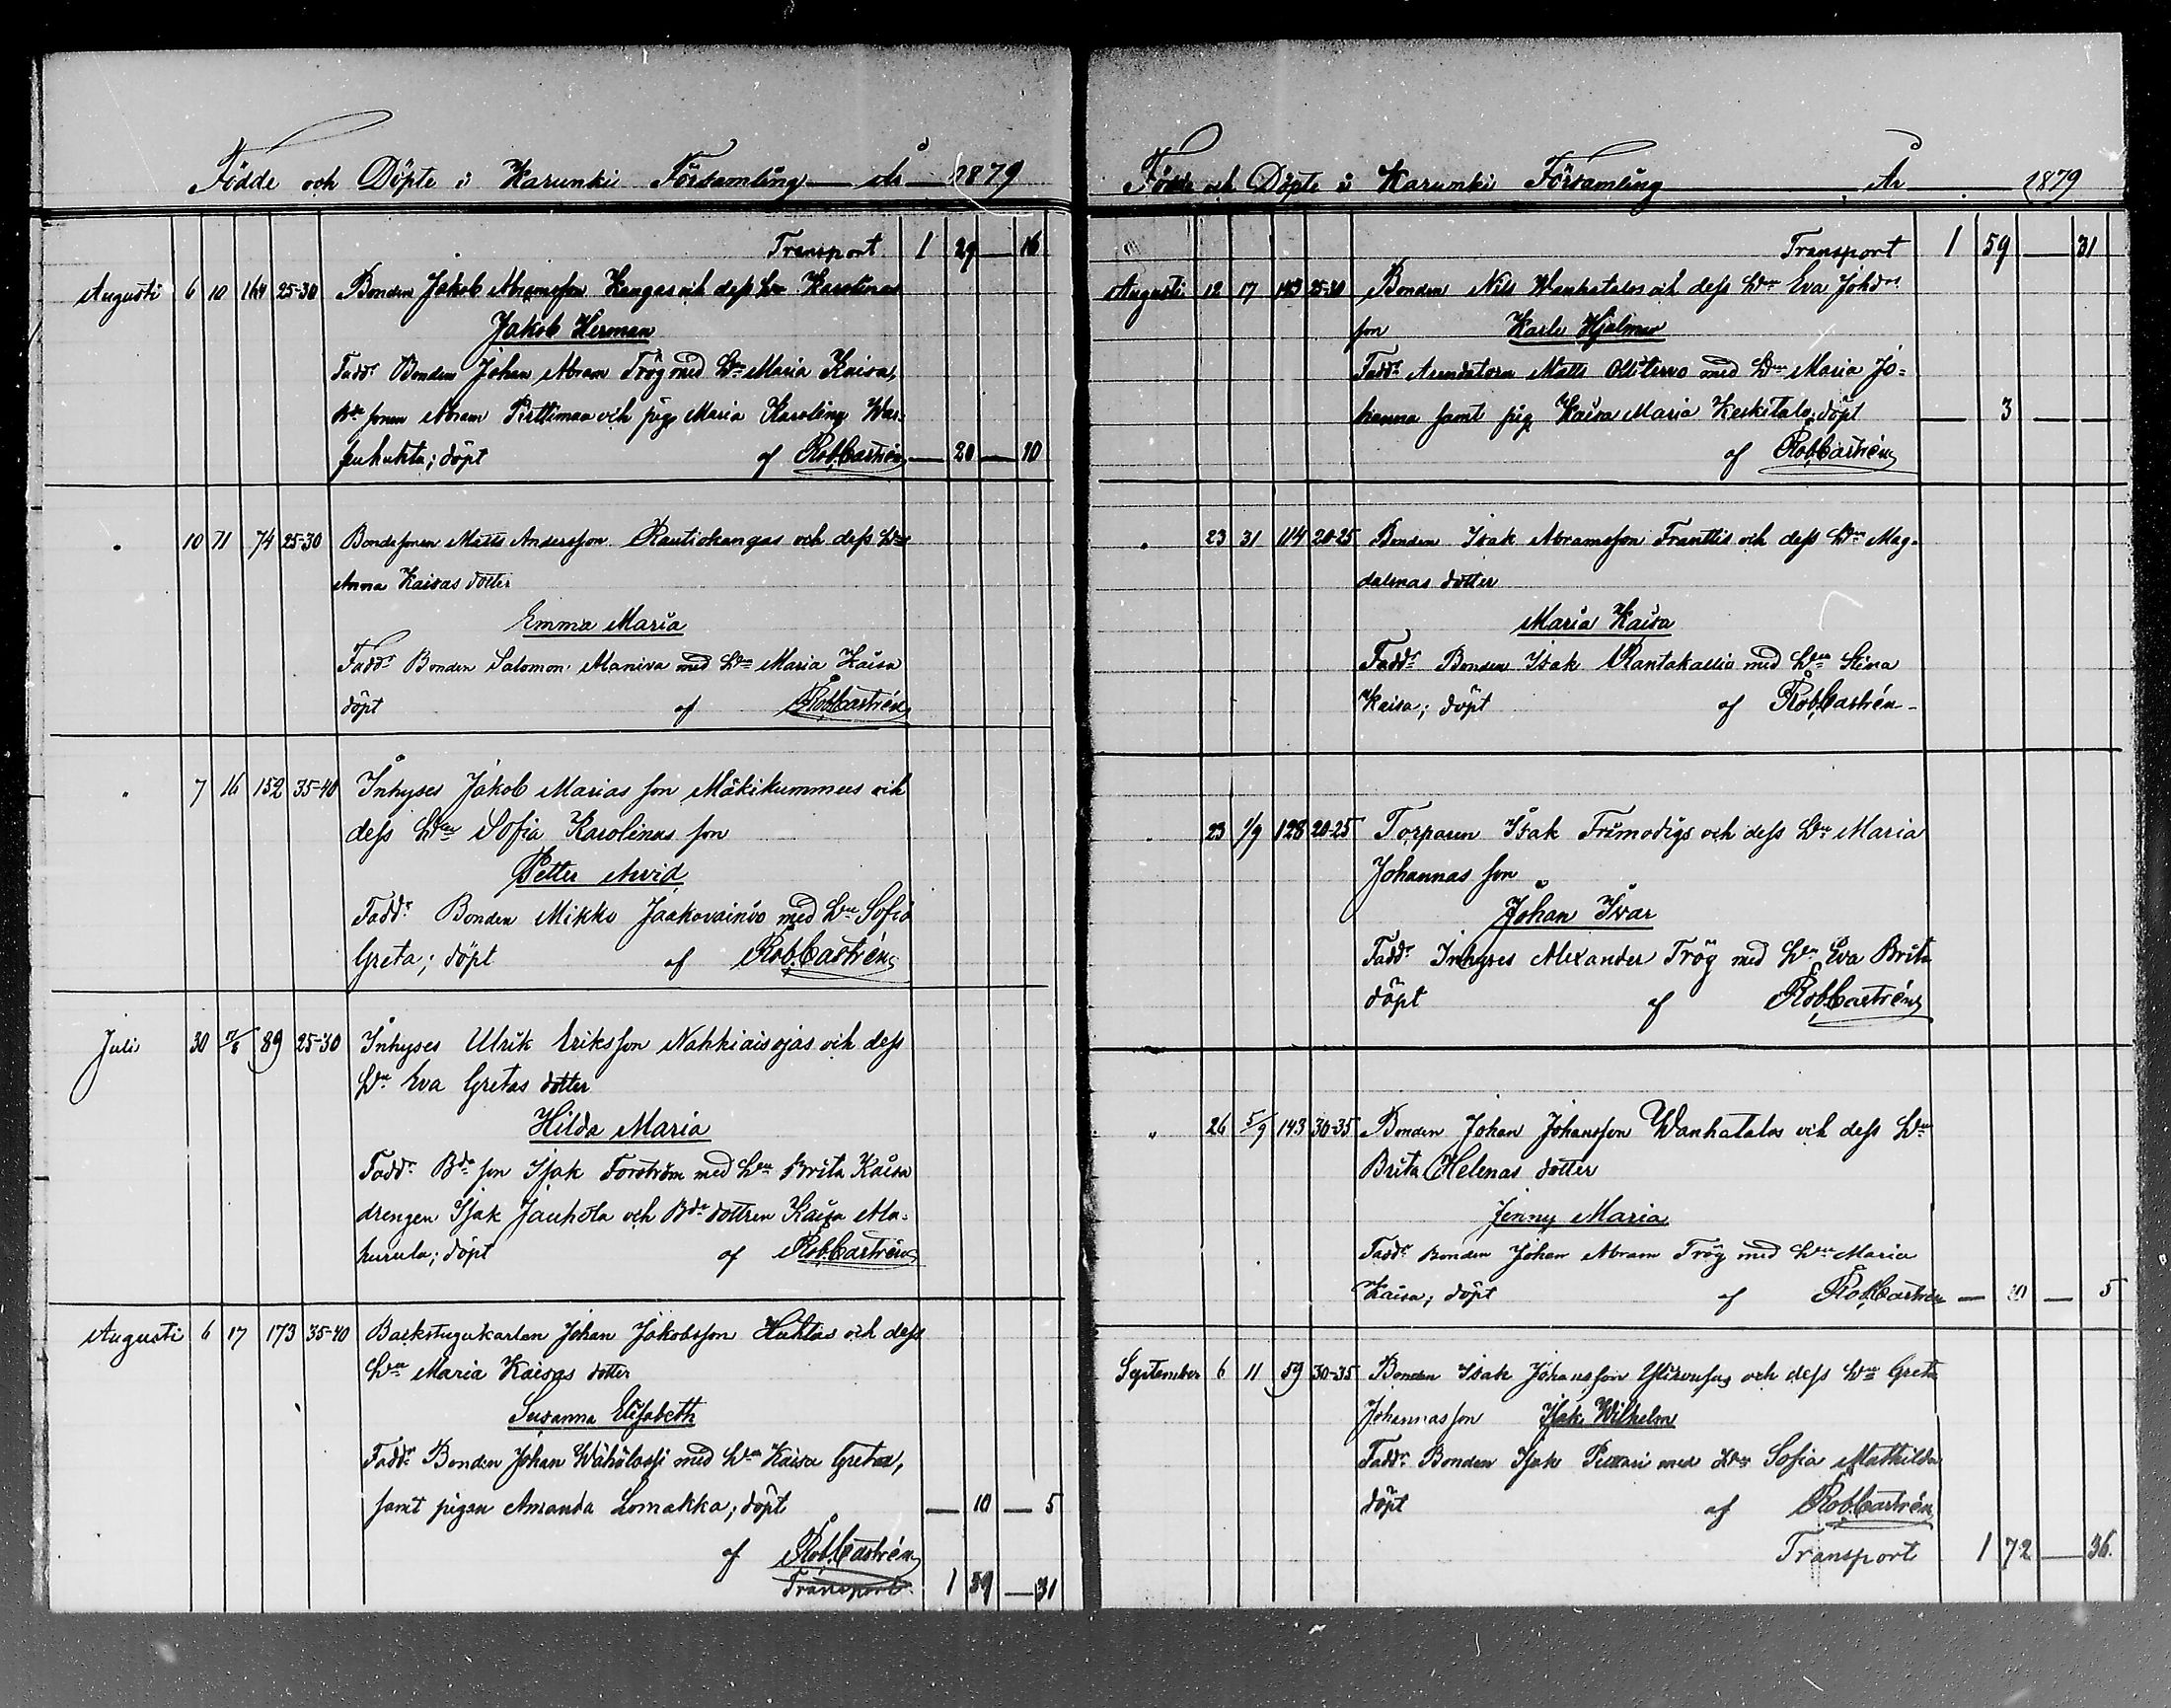 Födde och Döpte i Karunki Församling År 1879
Transport 1 29 — 16
Augusti 6 10 164 25-30 Bonden Jakob Abramsson Kangas och dess Hu Karolinas
Jakob Herman
Fadd: Bonden Johan Abram Trög med Hu Maria Kaisa,
Bde sonen Abram Pirttimaa och pig Maria Karolina
döpt af Rob. Castrén — 20 — 10
" 10 71 74 25-30 Bondesonen Matts Andersson Rautiokangas och dess Hus
Anna Kaisas dotter
Emma Maria
Fadd: Bonden Salomon Alaniva med Hu Maria Kaisa
döpt af Rob. Castrén
" 7 16 152 35-40 Inhyses Jakob Marias son Mäkikummus och
dess Hu Sofia Karolinas son
Petter Arvid
Fadd: Bonden Mikko Jaakovainio med Hu Sofia
Greta; döpt af Rob. Castrén
Juli 30 17/8 89 25-30 Inhyses Ulrik Eriksson Nahkiaisojas och dess
Hu Eva Gretas dotter
Hilda Maria
Fadd: Bde son Isak Forström med Hu Brita Kaisa
drengen Isak Jauhola och Bde dottren Kaisa Ala-
hurula; döpt af Rob. Castrén
Augusti 6 17 173 35-40 Backstugukarlen Johan Jakobsson Huhtas och dess
Hu Maria Kaisas dotter
Susanna Elisabeth
Fadd: Bonden Johan Wähälassi med Hu Kaisa Greta,
samt pigan Amanda Lomakka; döpt — 10 — 5
af Rob. Castrén
Transport 1 59 — 31
Födde och Döpte i Karunki Församling År 1879
Transport 1 59 — 31
Augusti 12 17 143 25-30 Bonden Nils Wanhatalos och dess Hu Eva Johdr
son Karl Hjalmar
Fadd: Arendatorn Matts Ollitervo med Hu Maria Jo-
hanna samt pig Kaisa Maria Keskitalo; döpt — 3 — —
af Rob. Castrén
" 23 31 114 20-25 Bonden Isak Abramsson Franttis och dess Hu Mag-
dalenas dotter
Maria Kaisa
Fadd: Bonden Isak Rantakallio med Hu Stina
Kaisa; döpt af Rob. Castrén
" 23 1/9 128 20-25 Torparen Isak Frimodigs och dess Hu Maria
Johannas son
Johan Ivar
Fadd: Inhyses Alexander Trög med Hu Eva Brita
döpt af Rob. Castrén
" 26 5/9 143 30-35 Bonden Johan Johansson Wanhatalos och dess Hu
Brita Helenas dotter
Jenny Maria
Fadd: Bonden Johan Abram Trög med Hu Maria
Kaisa; döpt af Rob. Castrén — 10 — 5
September 6 11 59 30-35 Bonden Isak Johansson och dess Hu Greta
Johannas son Isak Wilhelm
Fadd: Bonden Isak med Hu Sofia Mathilda
döpt af Rob. Castrén
Transport 1 72 — 36